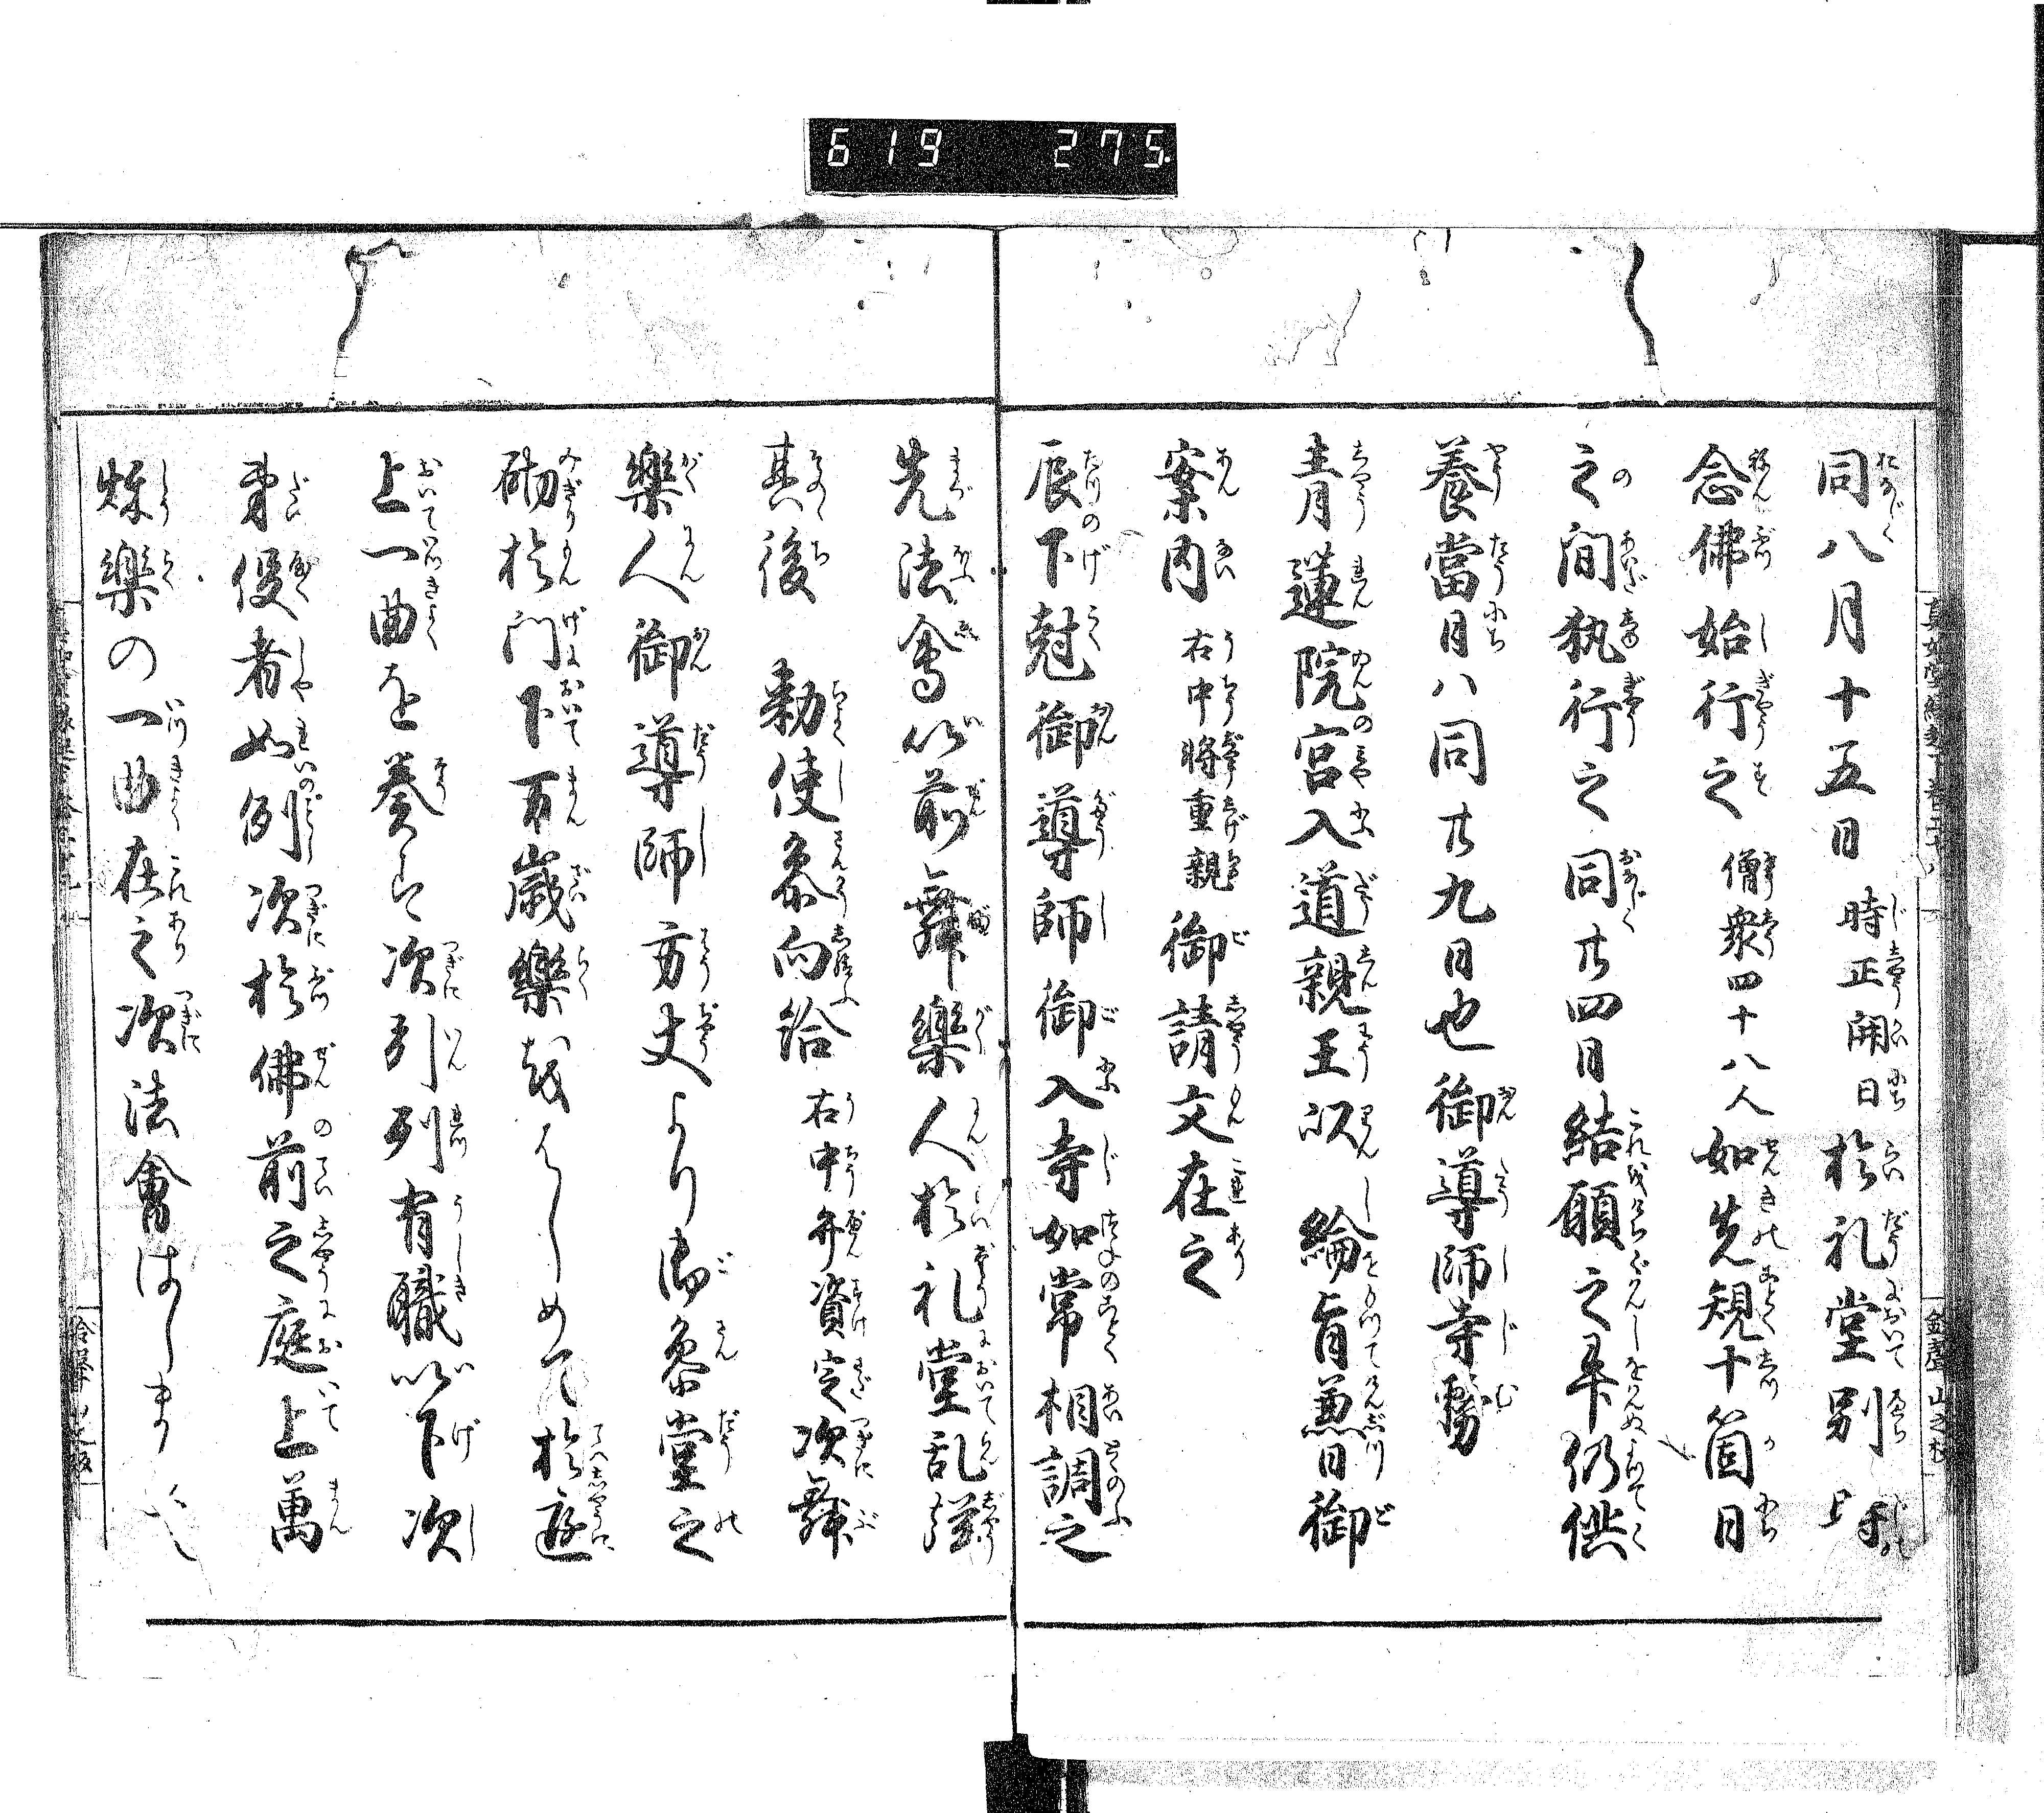 619 275
同八月十五日 時正開日 於礼堂別時
念佛始行之 僧衆四十八人 如先規十箇日
之間執行之同廿四日結願之早仍供
養當月八同廿九日也御導師寺務
青蓮院宮入道親王以 綸旨兼日御
案内 右中将重親 御請文在之
辰下尅御導師御入寺如常相調之
先法會以前舞樂人於礼堂乱聲
其後 勅使参向給 右中弁資定 次舞
樂人御導師方丈より御参堂之
砌於門下万歳樂をはしめて於庭
上一曲を奏す次引列有職以下次
弟役者如例次於佛前之庭上萬
秋樂の一曲在之次法會はしまる